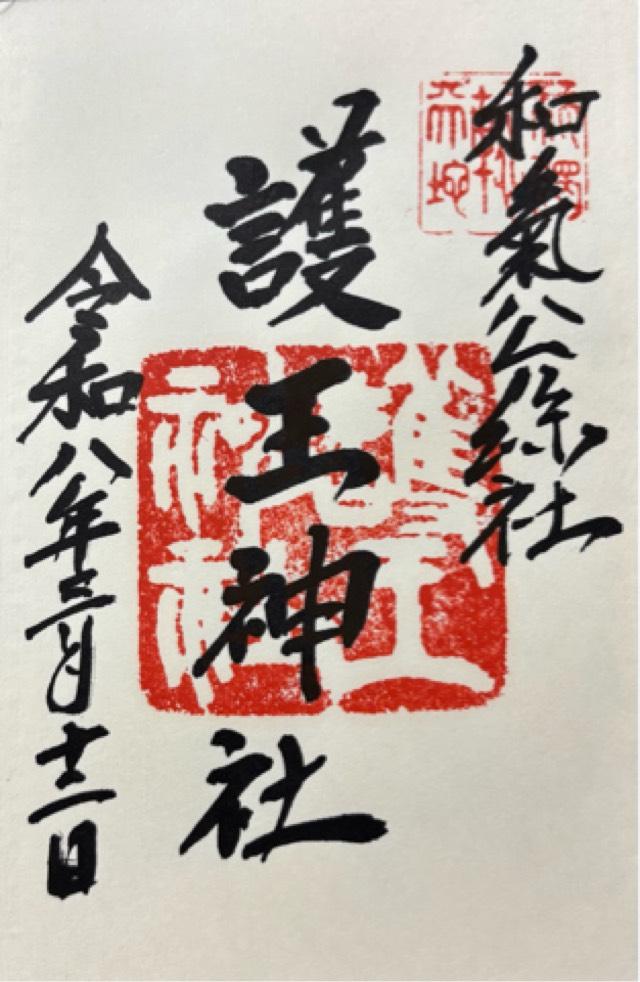 和氣公綜社
護王神社
令和八年三月十二日
護王神社